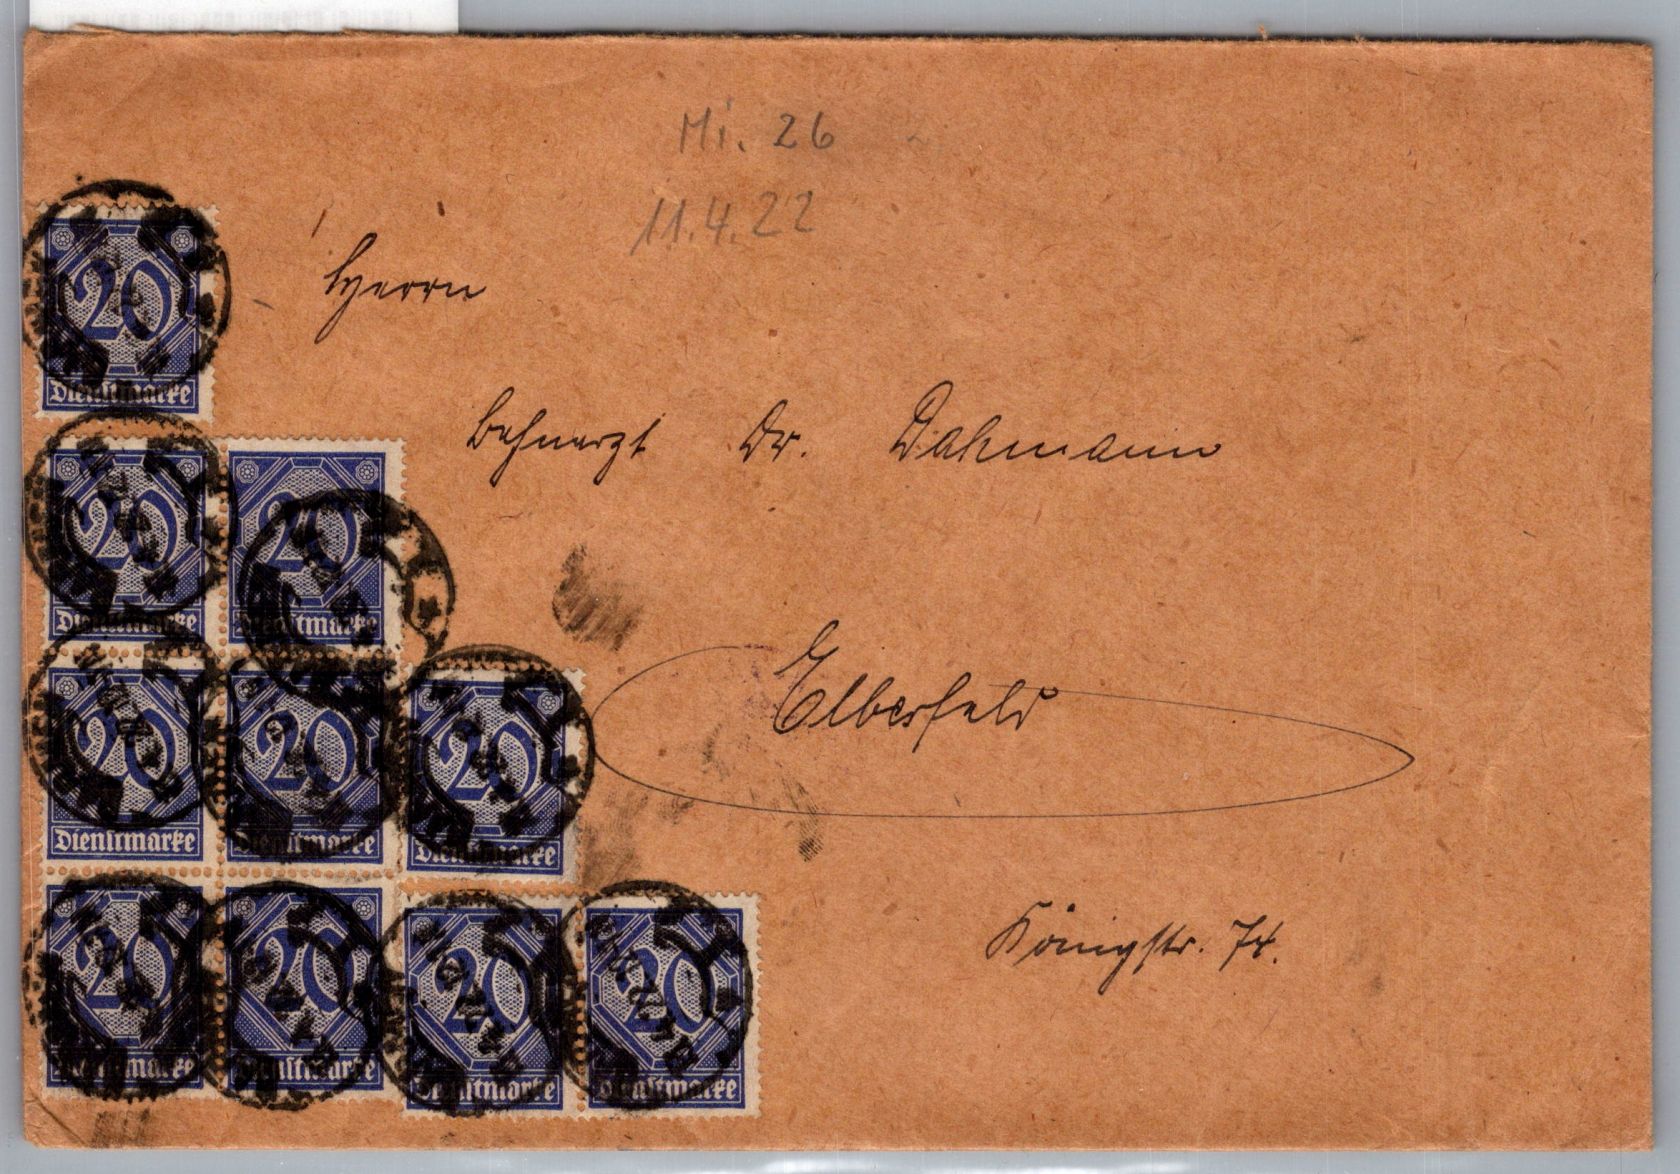 Mi. 26
11.4.22
Herrn
Bahnarzt Dr. Dahmann
Elberfeld
Königstr. 74.
20
Dienstmarke
20
Dienstmarke
20
Dienstmarke
20
Dienstmarke
20
Dienstmarke
20
Dienstmarke
20
Dienstmarke
20
Dienstmarke
20
Dienstmarke
20
Dienstmarke